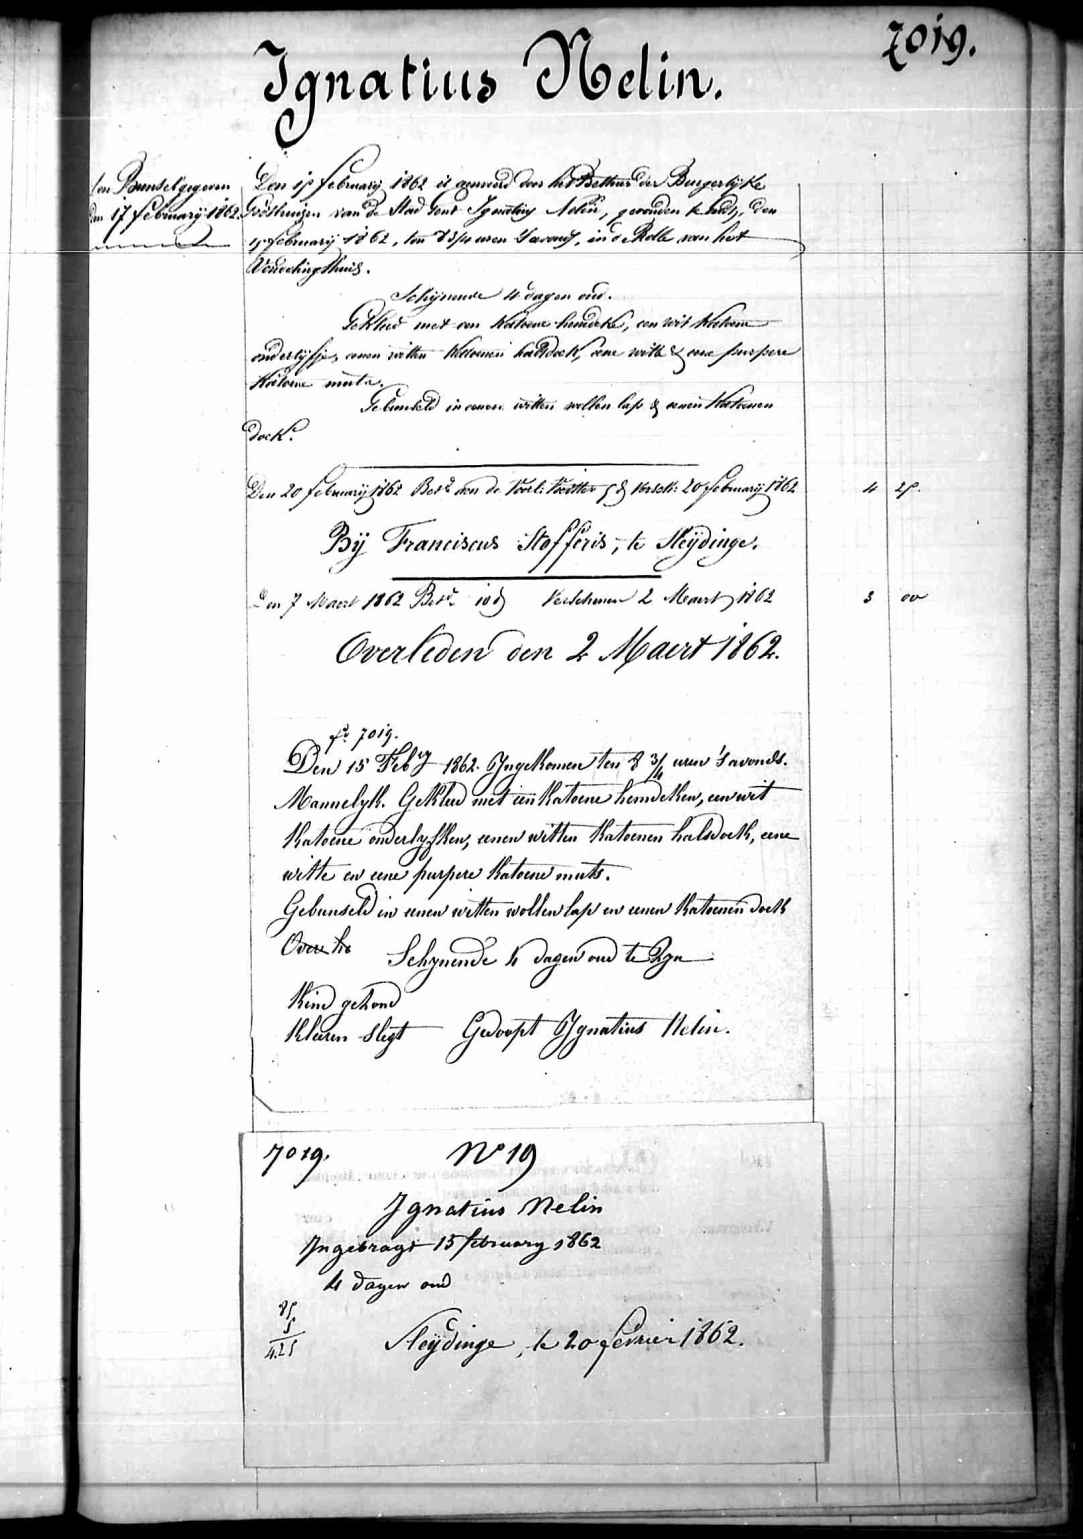 7019.
Ignatius Nelin.
een Bunsel gegeven
den 17 february 1862.
Den 15 february 1862 is aenveerd door het Bestuur der Burgerlyke
Godshuizen van de Stad Gent Ignatius Nelin, gevonden te Gent, den
15 februarij 1862, ten 8 3/4 uren 's avonds, in de Rolle van het
Vondelingshuis.
Schijnende 4 dagen oud.
Gekleed met een Katoene hemdeke, een wit Katoene
onderlijfje, eenen witten Katoenen halsdoek, eene witte & eene purpere
Katoene muts.
Gebunseld in eenen witten wollen lap & eenen Katoenen
doek.
Den 20 februarij 1862 Bet. aen de 20 februarij 1862 4 25.
Bij Franciscus Stofferis, te Sleijdinge.
Den 7 Maert 1862 Bet. Verschenen 2 Maert 1862 3 00
Overleden den 2 Maert 1862.
fo. 7019.
Den 15 Feby 1862. Yngekomen ten 8 3/4 uren 's avonds.
Mannelyk. Gekleed met een Katoene hemdeken, een wit
Katoene onderlyfken, eenen witten Katoenen halsdoek, eene
witte en eene purpere Katoene muts.
Gebunseld in eenen witten wollen lap en eenen Katoenen doek
Schynende 4 dagen oud te Zyn
Kind gezond
Kleeren slegt Gedoopt Ygnatius Nelin.
7019. No 19
Ignatius Nelin
Yngebragt 15 february 1862
4 dagen oud
4.25
Sleijdinge, le 20 février 1862.